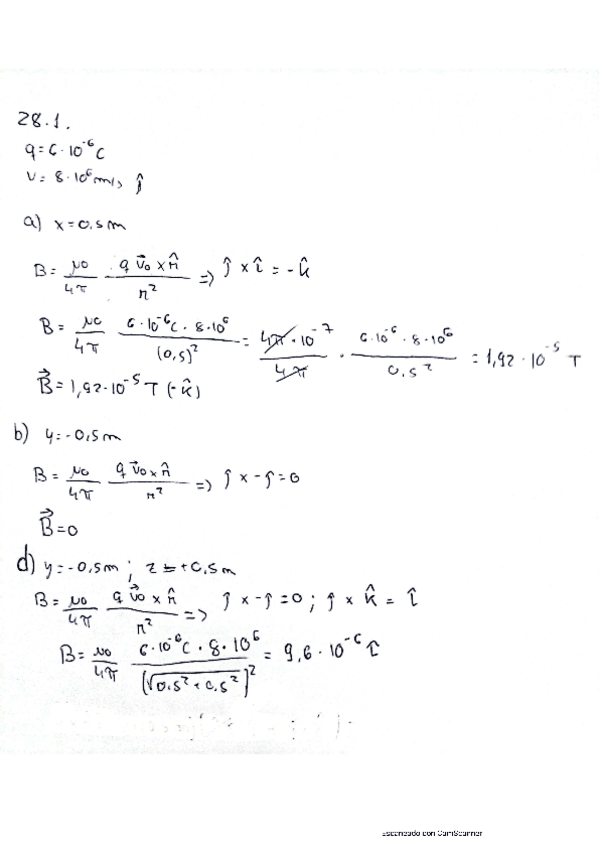 28.1.
q = 6·10⁻⁶ C
v = 8·10⁶ m/s ĵ
a) x = 0.5 m
B = μ₀/4π · q v⃗₀ × r̂ / r² => ĵ × î = -k̂
B = μ₀/4π · 6·10⁻⁶ C · 8·10⁶ / (0,5)² = 4π·10⁻⁷/4π · 6·10⁻⁶ · 8·10⁶ / 0.5² = 1,92·10⁻⁵ T
B⃗ = 1,92·10⁻⁵ T (-k̂)
b) y = -0,5 m
B = μ₀/4π · q v⃗₀ × r̂ / r² => ĵ × -ĵ = 0
B⃗ = 0
d) y = -0,5 m ; z = +0,5 m
B = μ₀/4π · q v⃗₀ × r̂ / r² => ĵ × -ĵ = 0 ; ĵ × k̂ = î
B = μ₀/4π · 6·10⁻⁶ C · 8·10⁶ / (√0.5² + 0.5²)² = 9,6·10⁻⁶ î
Escaneado con CamScanner